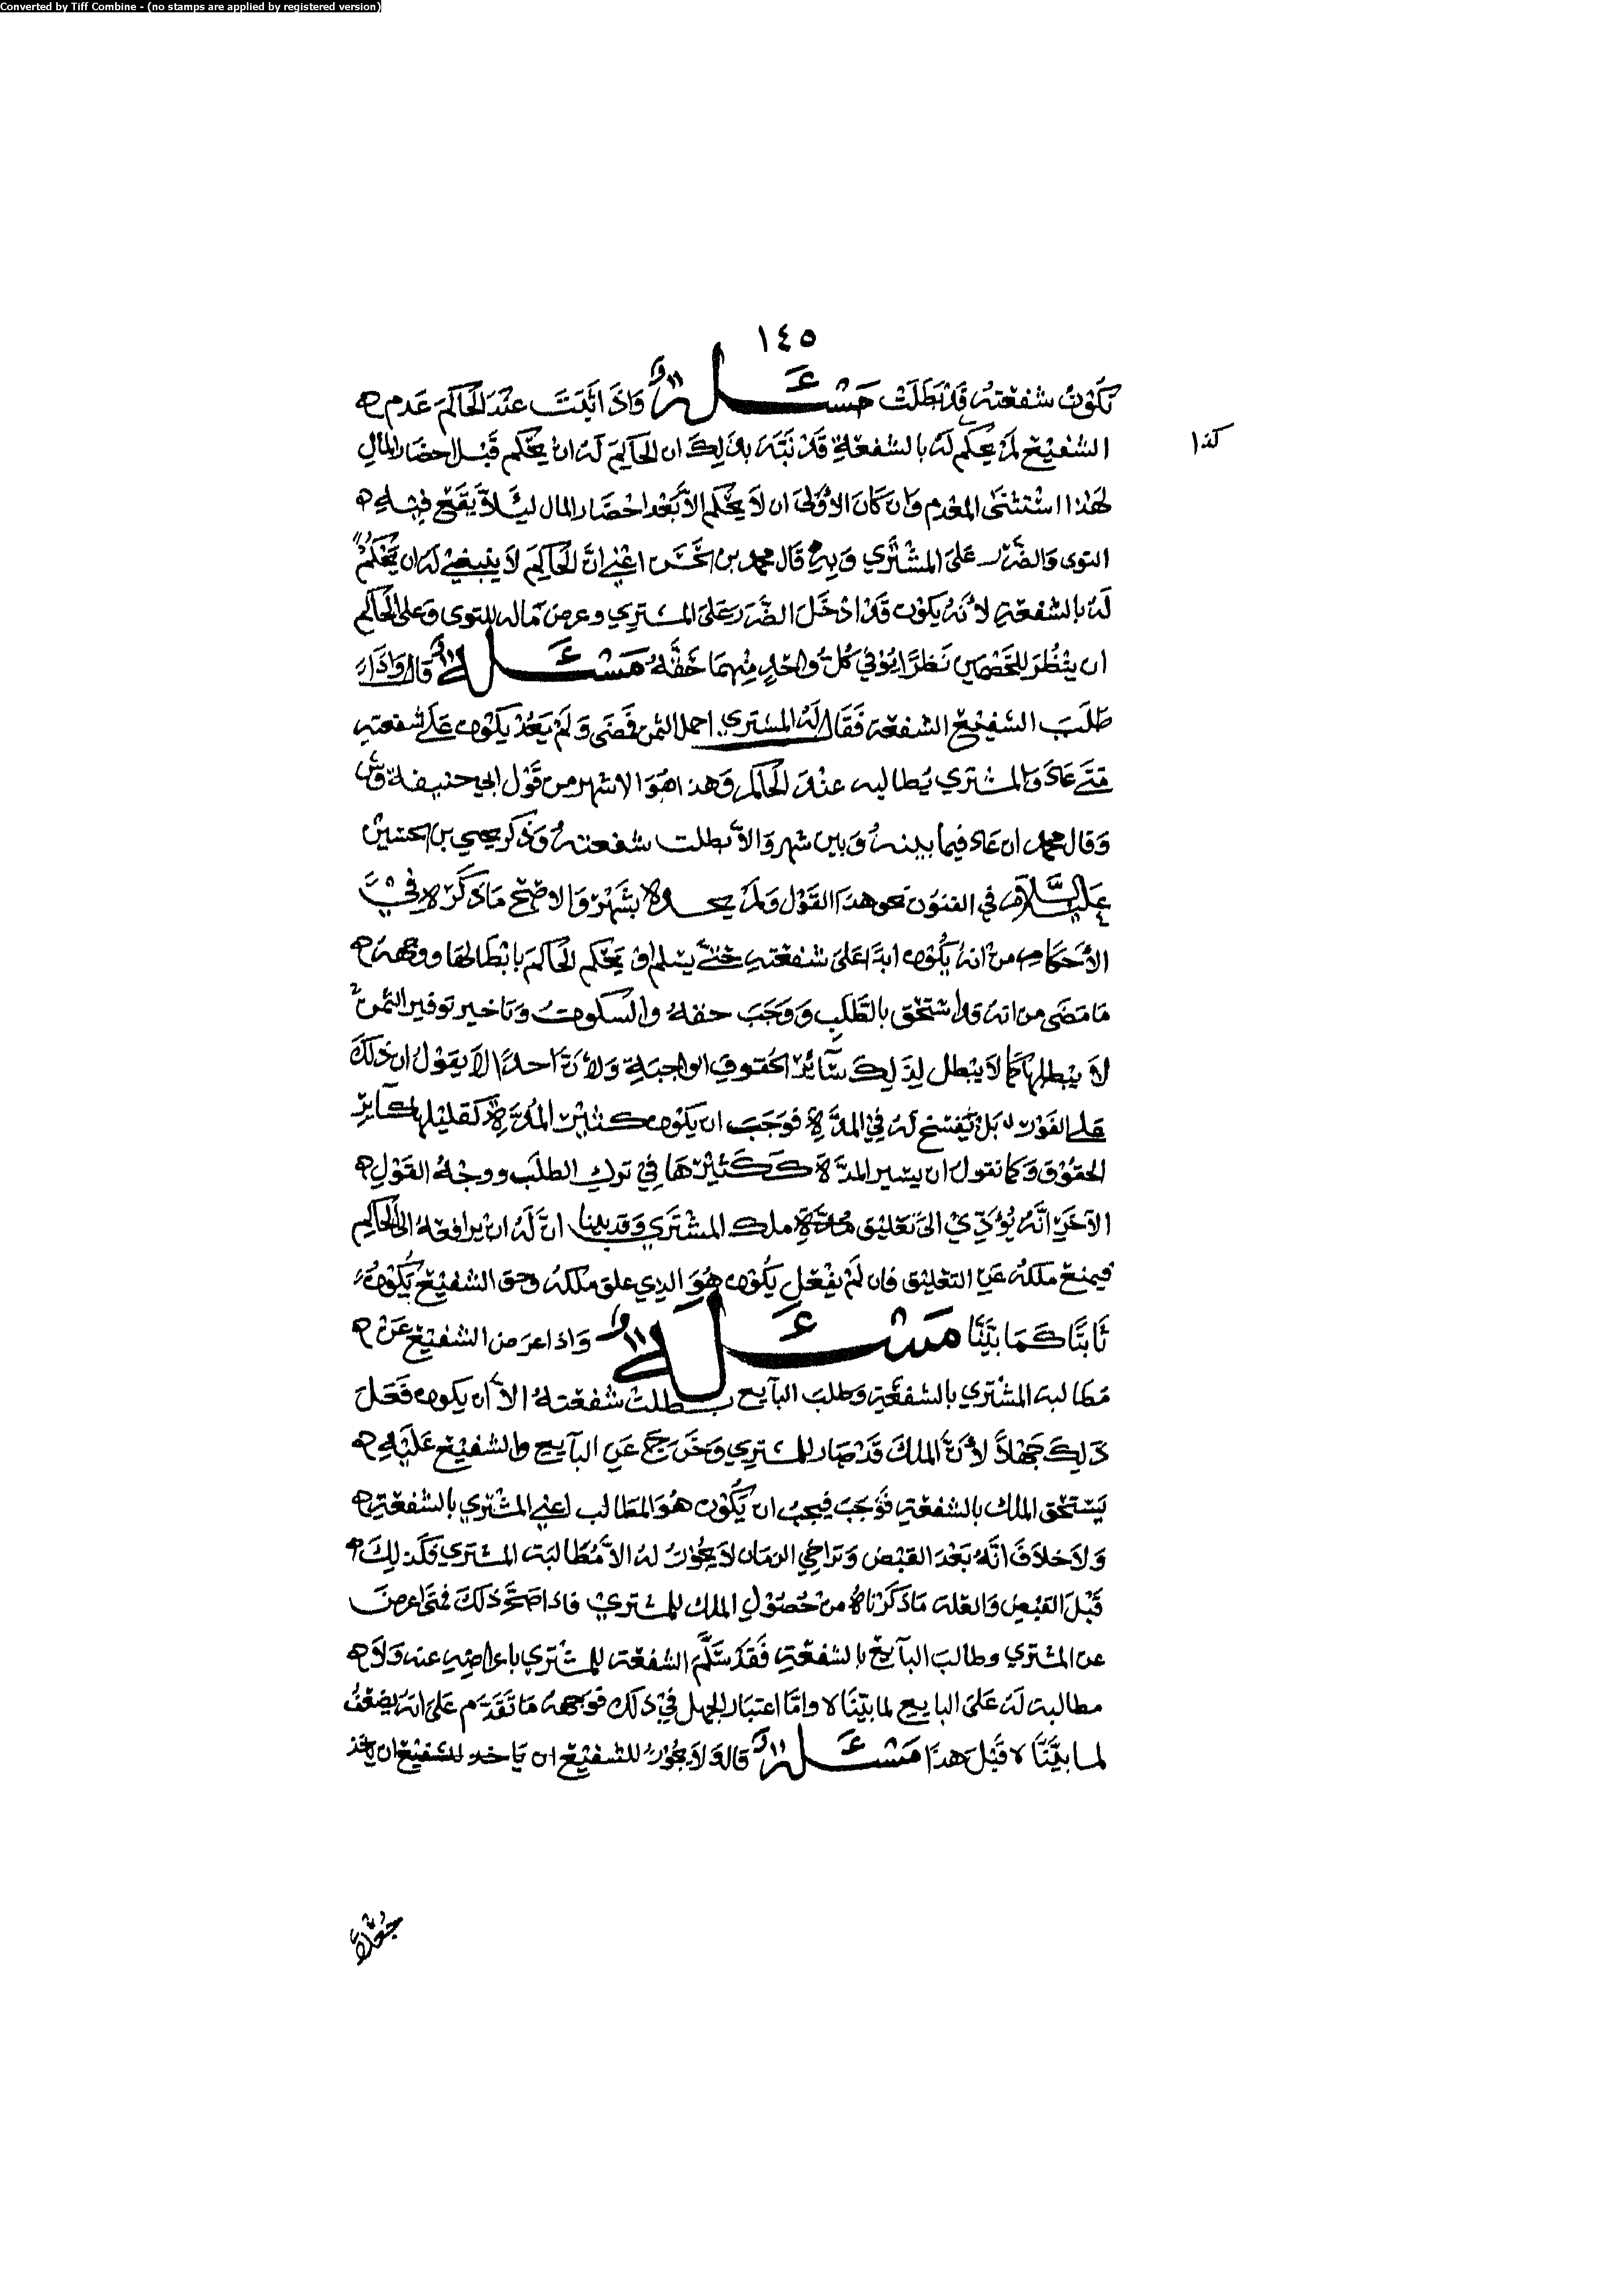 Converted by Tiff Combine - (no stamps are applied by registered version)
١٤٥
تكون شفعته قد بطلت مسئلة واذا اثبتت عند الحاكم عدم
الشفيع لم يحكم له بالشفعة قد نبه بذلك ان الحاكم له ان يحكم قبل احضار المال
كذا
لهذا استثنى المعدم وان كان الأولى ان لا يحكم الا بعد احضار المال ليلا يقع فيه
التوى والضرر على المشتري وبه قال محمد بن الحسن اعني ان الحاكم لا ينبغي له ان يحكم
له بالشفعة لأنه يكون قد ادخل الضرر على المشتري وعرض ماله للتوى وعلى الحاكم
ان ينظر للخصمين نظرا يوفي كل واحد منهما حقه مسئلة قال واذا
طلب الشفيع الشفعة فقال له المشتري احمل الثمن فمضى ولم يعد يكون على شفعته
متى عاد والمشتري يطالبه عند الحاكم وهذا هو الاشهر من قول ابي حنيفة وش
وقال محمد ان عاد فيما بينه وبين شهر والا بطلت شفعته وذكر يحيى بن الحسين
عليه السلام في الفنون نحو هذا القول ولم يحده بشهر والاصح ما ذكره في
الأحكام من انه يكون ابدا على شفعته حتى يسلم او يحكم الحاكم بابطالها ووجهه
ما مضى من انه قد استحق بالطلب ووجب حقه والسكوت وتاخير توفير الثمن
لا يبطلها كما لا يبطل لذلك سائر الحقوق الواجبة ولأن احدا لا يقول ان ذلك
على الفور بل يفسخ له في المدة فوجب ان يكون كثير المدة كقليلها كساير
الحقوق وكما نقول ان يسير المدة ككثيرها في ترك الطلب ووجه القول
الآخر انه يؤدي الى تعليق ملك المشتري وقد بينا ان له ان يرافعه الى الحاكم
فيمنع ملكه عن التعليق فان لم يفعل يكون هو الذي علق ملكه وحق الشفيع يكون
ثابتا كما بينا مسئلة واذا اعرض الشفيع عن
مطالبة المشتري بالشفعة وطلب البايع بطلت شفعته الا ان يكون فعل
ذلك جهلا لأن الملك قد صار للمشتري وخرج عن البايع والشفيع عليه
يستحق الملك بالشفعة فوجب فيجب ان يكون هو المطالب اعني المشتري بالشفعة
ولا خلاف انه بعد القبض وتراخي الزمان لا يجوز له الا مطالبة المشتري فكذلك
قبل القبض والعلة ما ذكرناه من حصول الملك للمشتري فاذا صح ذلك فمتى اعرض
عن المشتري وطالب البايع بالشفعة فقد سلم الشفعة للمشتري باعراضه عنه ولا
مطالبة له على البايع لما بيناه واما اعتبار الجهل في ذلك فوجهه ما تقدم على انه يضعف
لما بيناه قبل هذا مسئلة قال ولا يجوز للشفيع ان ياخذ للشفيع ان ياخذ